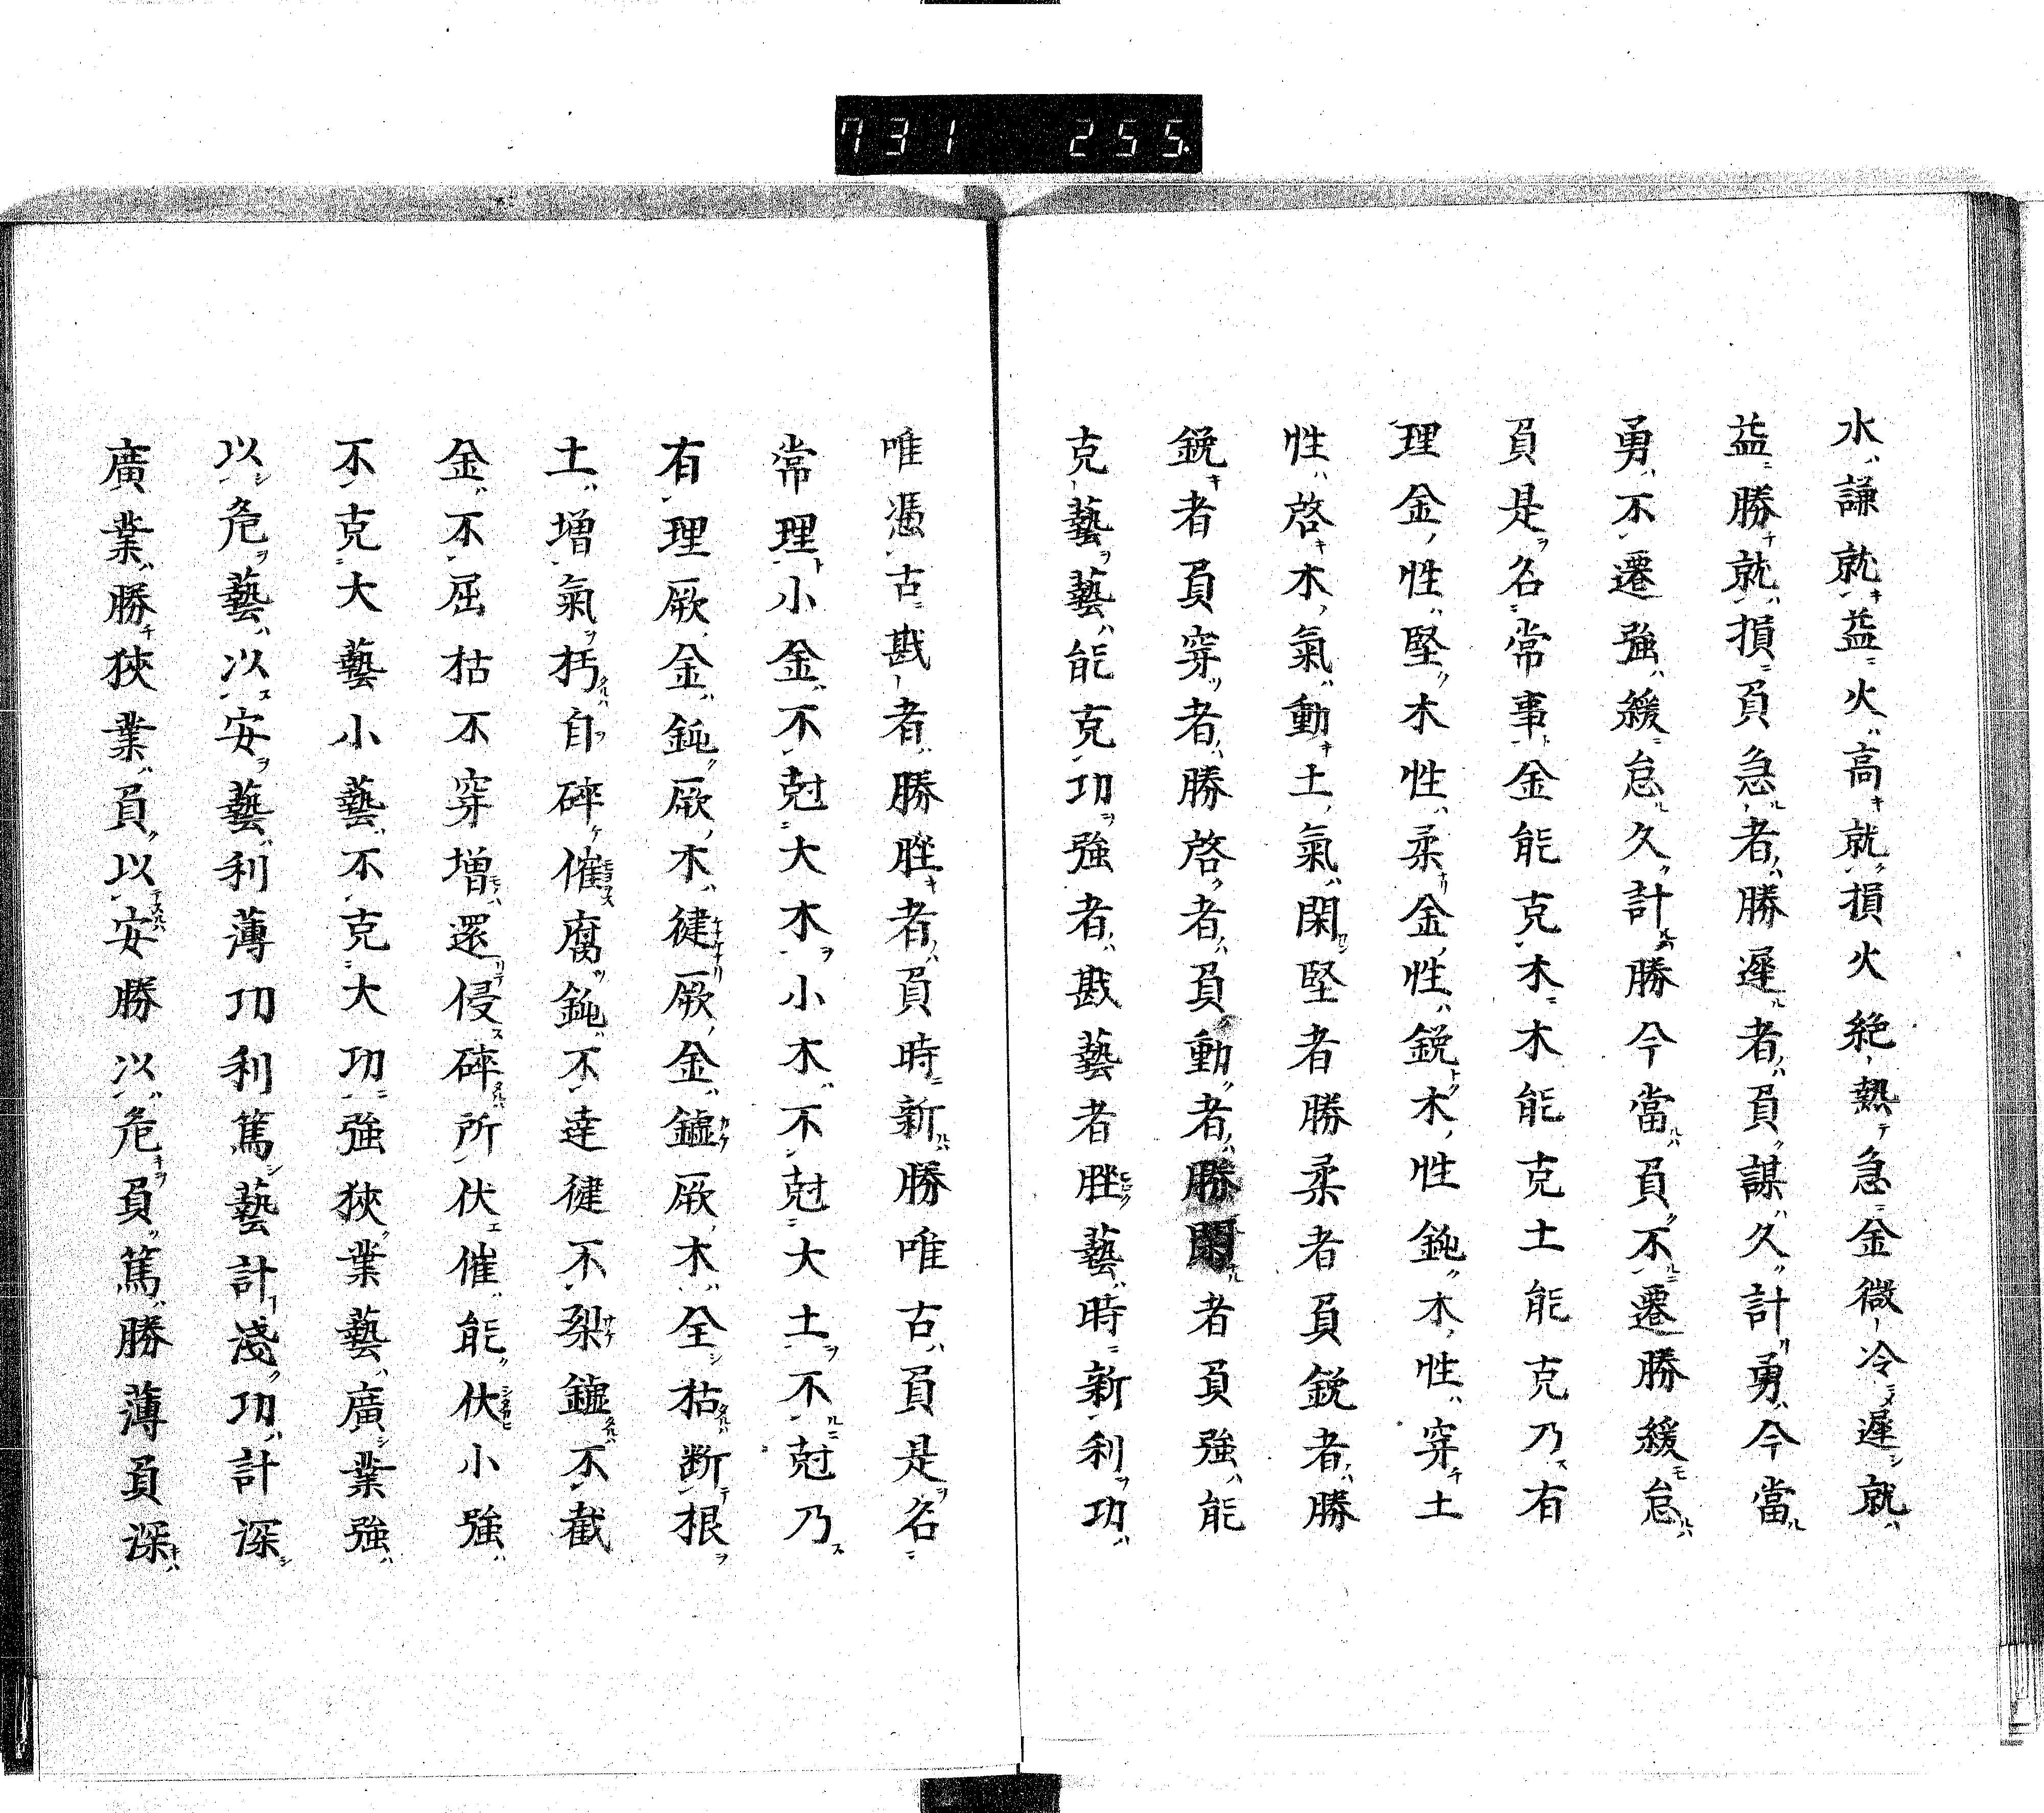 731 255
水謙就益火高就損火絶熱急金微冷遲就
益勝就損負急者勝遲者負謀久計勇今當
勇不遷強緩怠久計勝今當負不遷勝緩怠
負是名常事金能克木木能克土能克乃有
理金性堅木性柔金性鋭木性鈍木性穿土
性啓木氣動土氣閑堅者勝柔者負鋭者勝
鋭者負穿者勝啓者負動者勝閑者負強能
克藝藝能克功強者戡藝者胜藝時新利功
唯憑古戡者勝胜者負時新勝唯古負是名
常理小金不尅大木小木不尅大土不尅乃
有理厥金鈍厥木健厥金鑢厥木全枯断根
土増氣朽自碎催腐鈍不達健不裂鑢不截
金不屈枯不穿増還侵碎所伏催能伏小強
不克大藝小藝不克大功強狹業藝廣業強
以危藝以安藝利薄功利篤藝計淺功計深
廣業勝狹業負以安勝以危負篤勝薄負深